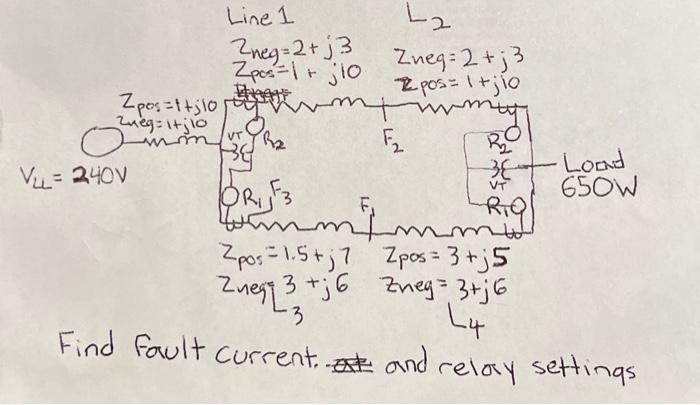 Line 1
L2
Zneg=2+j3
Zpos=1+j10
Zneg=2+j3
Zpos=1+j10
Zpos=1+j10
Zneg=1+j10
VLL=240V
VT
3
R2
F2
R2
3
VT
R1
Load
650W
R1
F3
F1
Zpos=1.5+j7
Zneg=3+j6
L3
Zpos=3+j5
Zneg=3+j6
L4
Find fault current. and relay settings